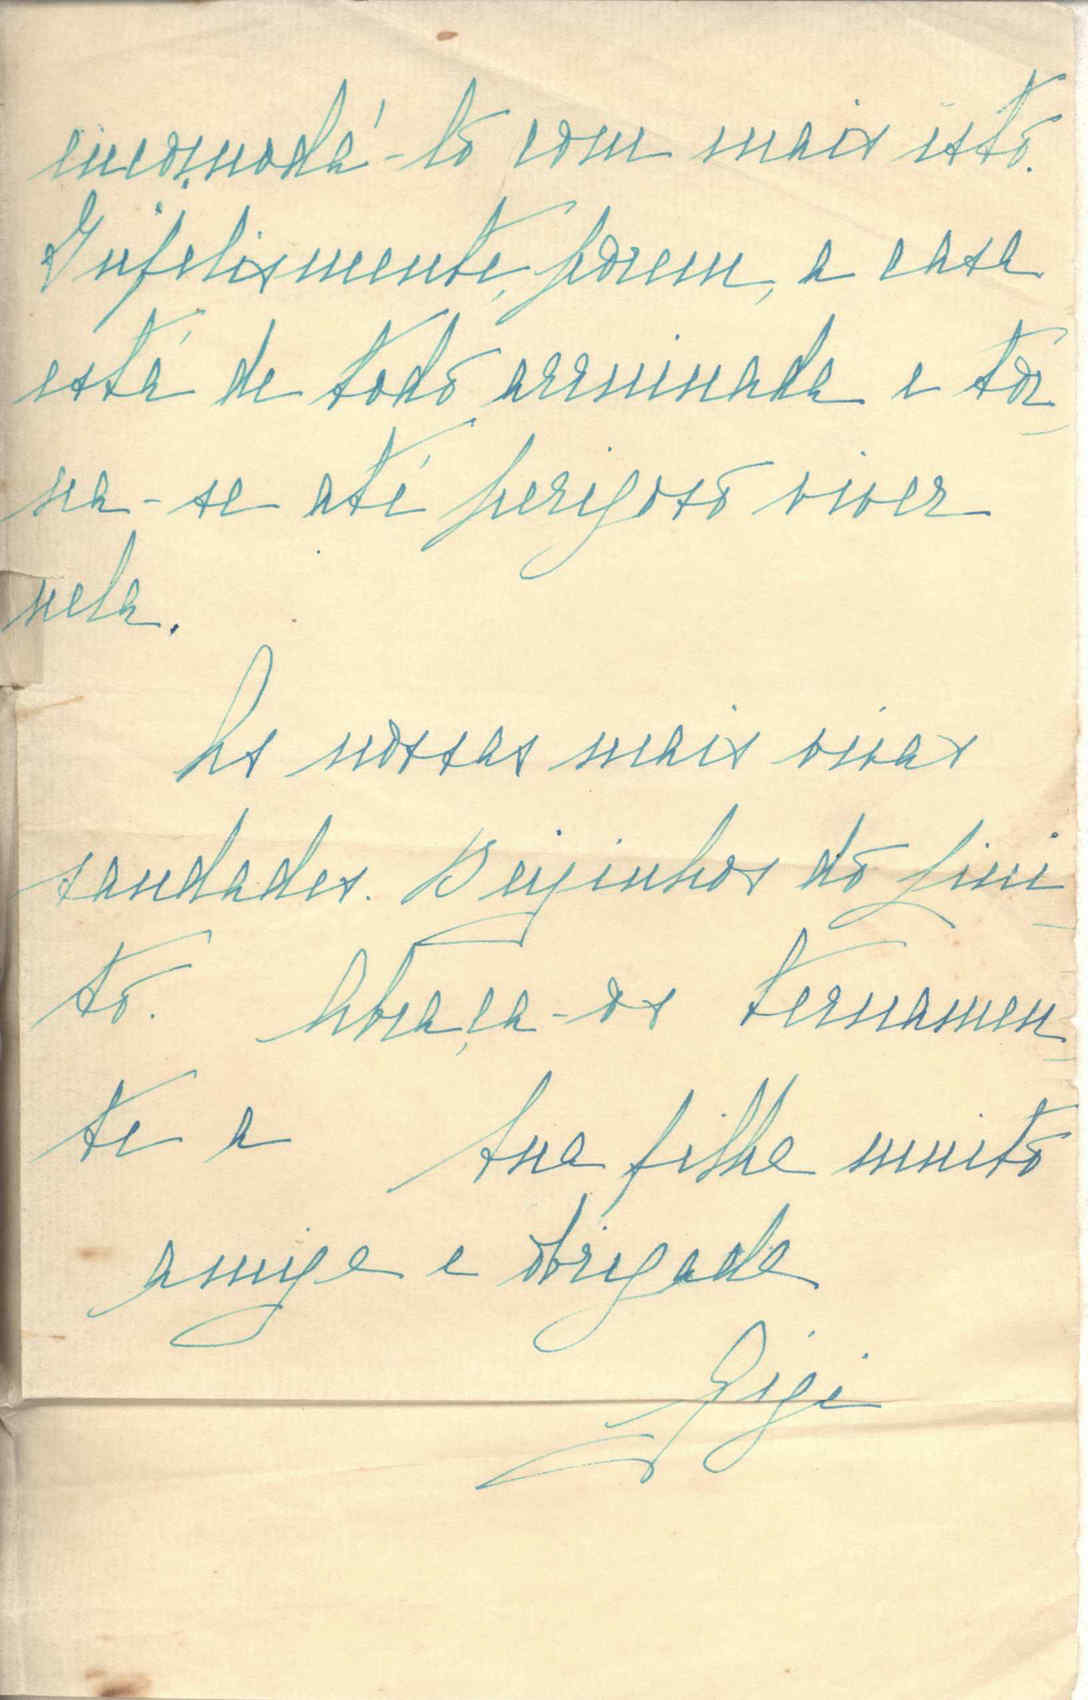 encomodá-lo com mais isto.
Infelismente, porem, a casa
está de todo arruinada e tor-
na-se até perigoso viver
nela.
As nossas mais vivas
saudades. Beijinhos do Lini-
to. Abraça-os ternamen-
te a sua filha muito
amiga e obrigada
Gigi